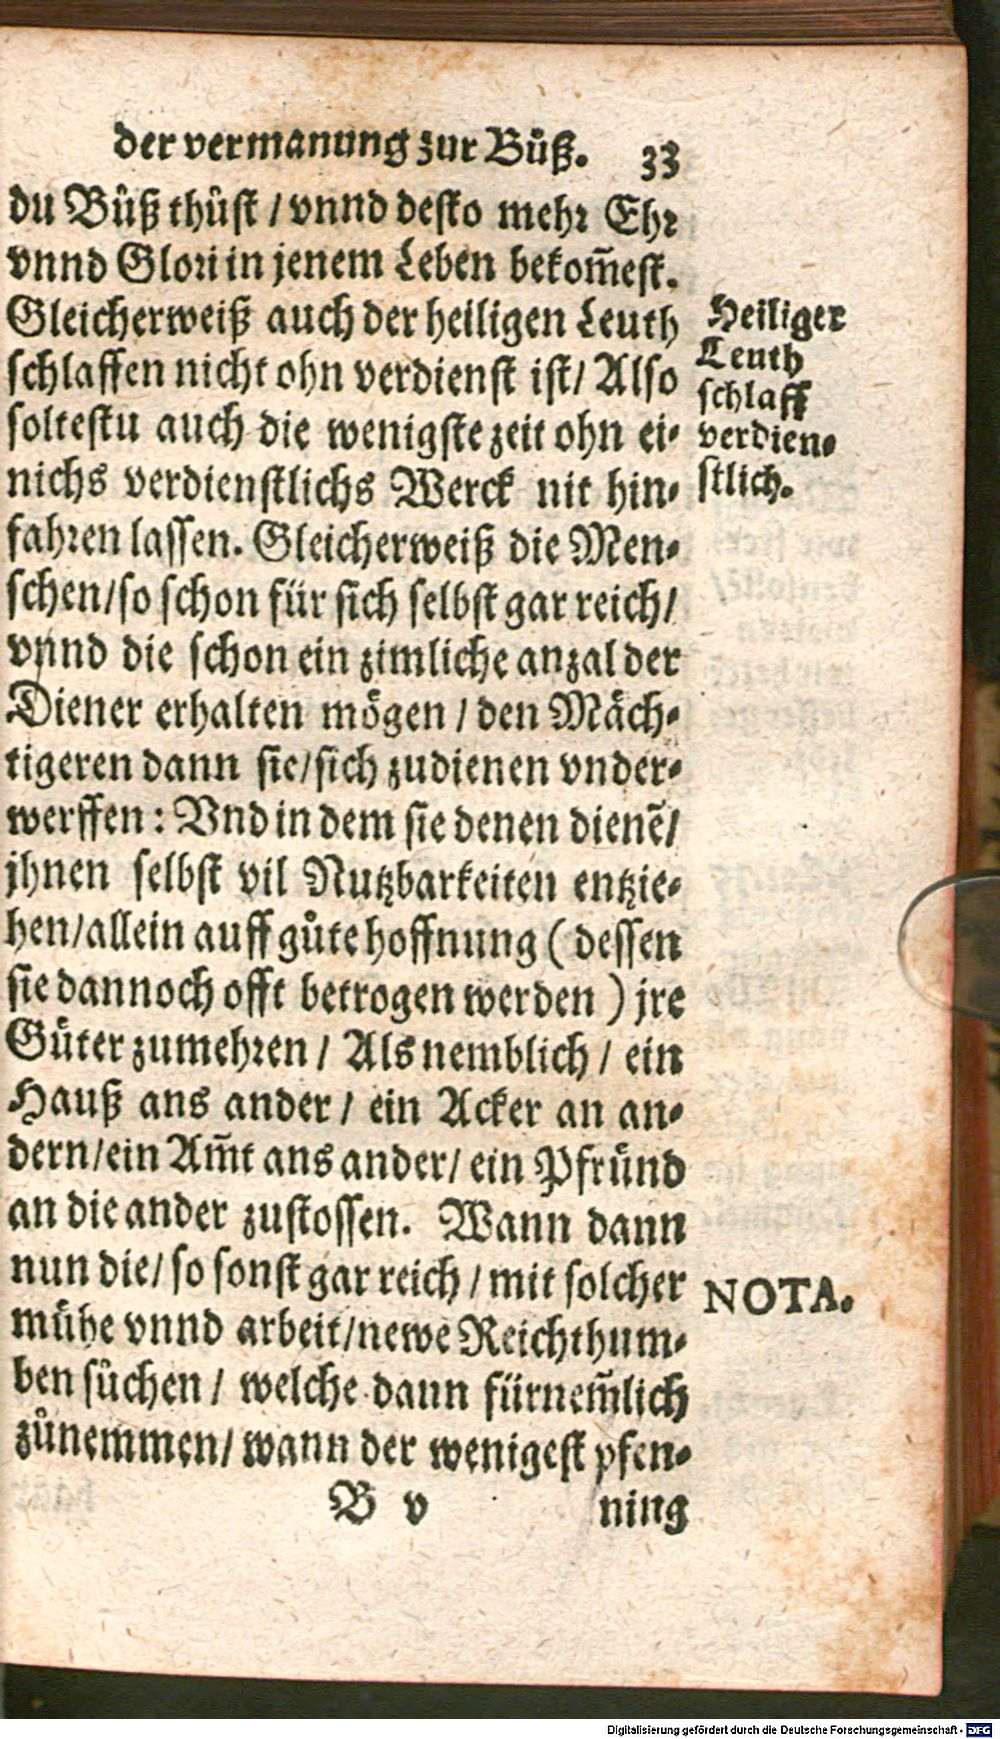 der vermanung zur Bůß. 33
du Bůß thůst / vnnd desto mehr Ehr
vnnd Glori in jenem Leben bekom̃est.
Gleicherweiß auch der heiligen Leuth
schlaffen nicht ohn verdienst ist / Also
soltestu auch die wenigste zeit ohn ei-
nichs verdienstlichs Werck nit hin-
fahren lassen. Gleicherweiß die Men-
schen / so schon für sich selbst gar reich /
vnnd die schon ein zimliche anzal der
Diener erhalten mögen / den Mäch-
tigeren dann sie / sich zudienen vnder-
werffen : Vnd in dem sie denen dienẽ /
jhnen selbst vil Nutzbarkeiten entzie-
hen / allein auff gůte hoffnung ( dessen
sie dannoch offt betrogen werden ) jre
Güter zumehren / Als nemblich / ein
Hauß ans ander / ein Acker an an-
dern / ein Am̃t ans ander / ein Pfründ
an die ander zustossen. Wann dann
nun die / so sonst gar reich / mit solcher
mühe vnnd arbeit / newe Reichthum-
ben sůchen / welche dann fürnem̃lich
zůnemmen / wann der wenigest pfen-
B v ning
Heiliger
Leuth
schlaff
verdien-
stlich.
NOTA.
Digitalisierung gefördert durch die Deutsche Forschungsgemeinschaft - DFG